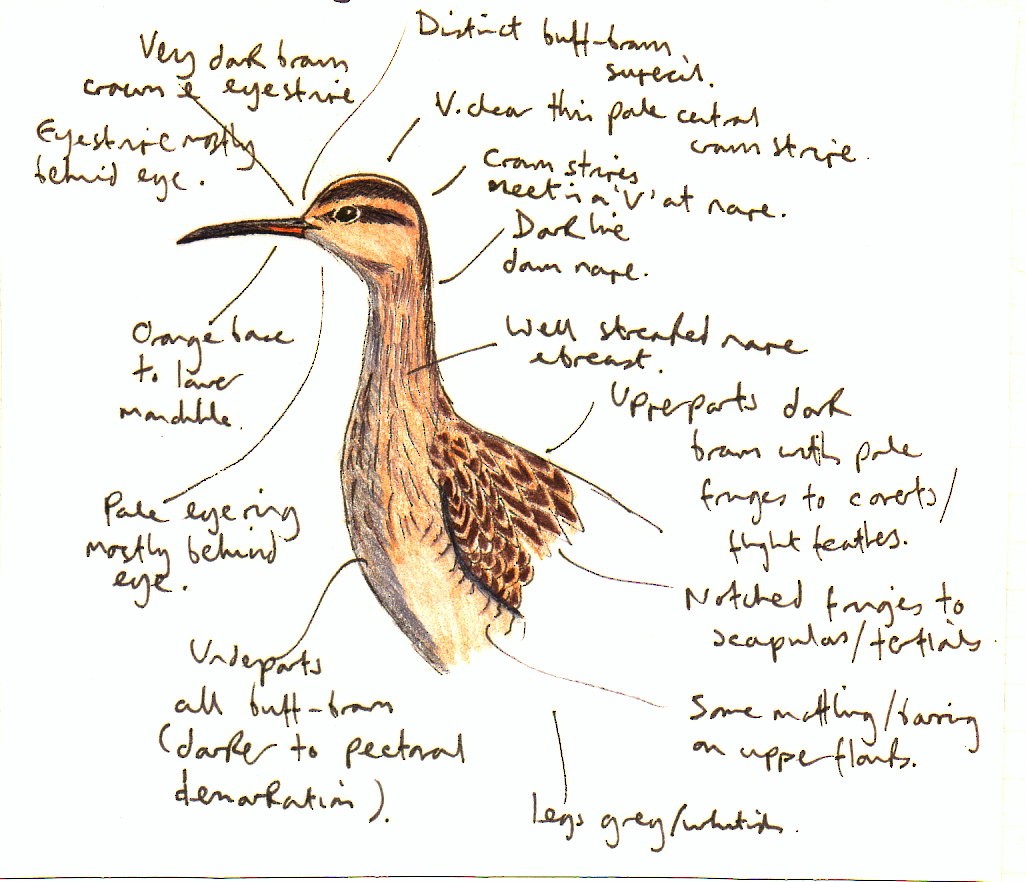 Distinct buff-brown
supercil.
Very dark brown
crown & eyestripe
Eyestripe mostly
behind eye.
V. clear thin pale central
crown stripe.
Crown stripes
meet in a 'V' at nape.
Dark line
down nape.
Orange base
to lower
mandible.
Well streaked nape
& breast.
Upperparts dark
brown with pale
fringes to coverts/
flight feathers.
Pale eyering
mostly behind
eye.
Notched fringes to
scapulars/tertials.
Underparts
all buff-brown
(darker to pectoral
demarkation).
Some mottling/barring
on upper flanks.
Legs grey/whitish.